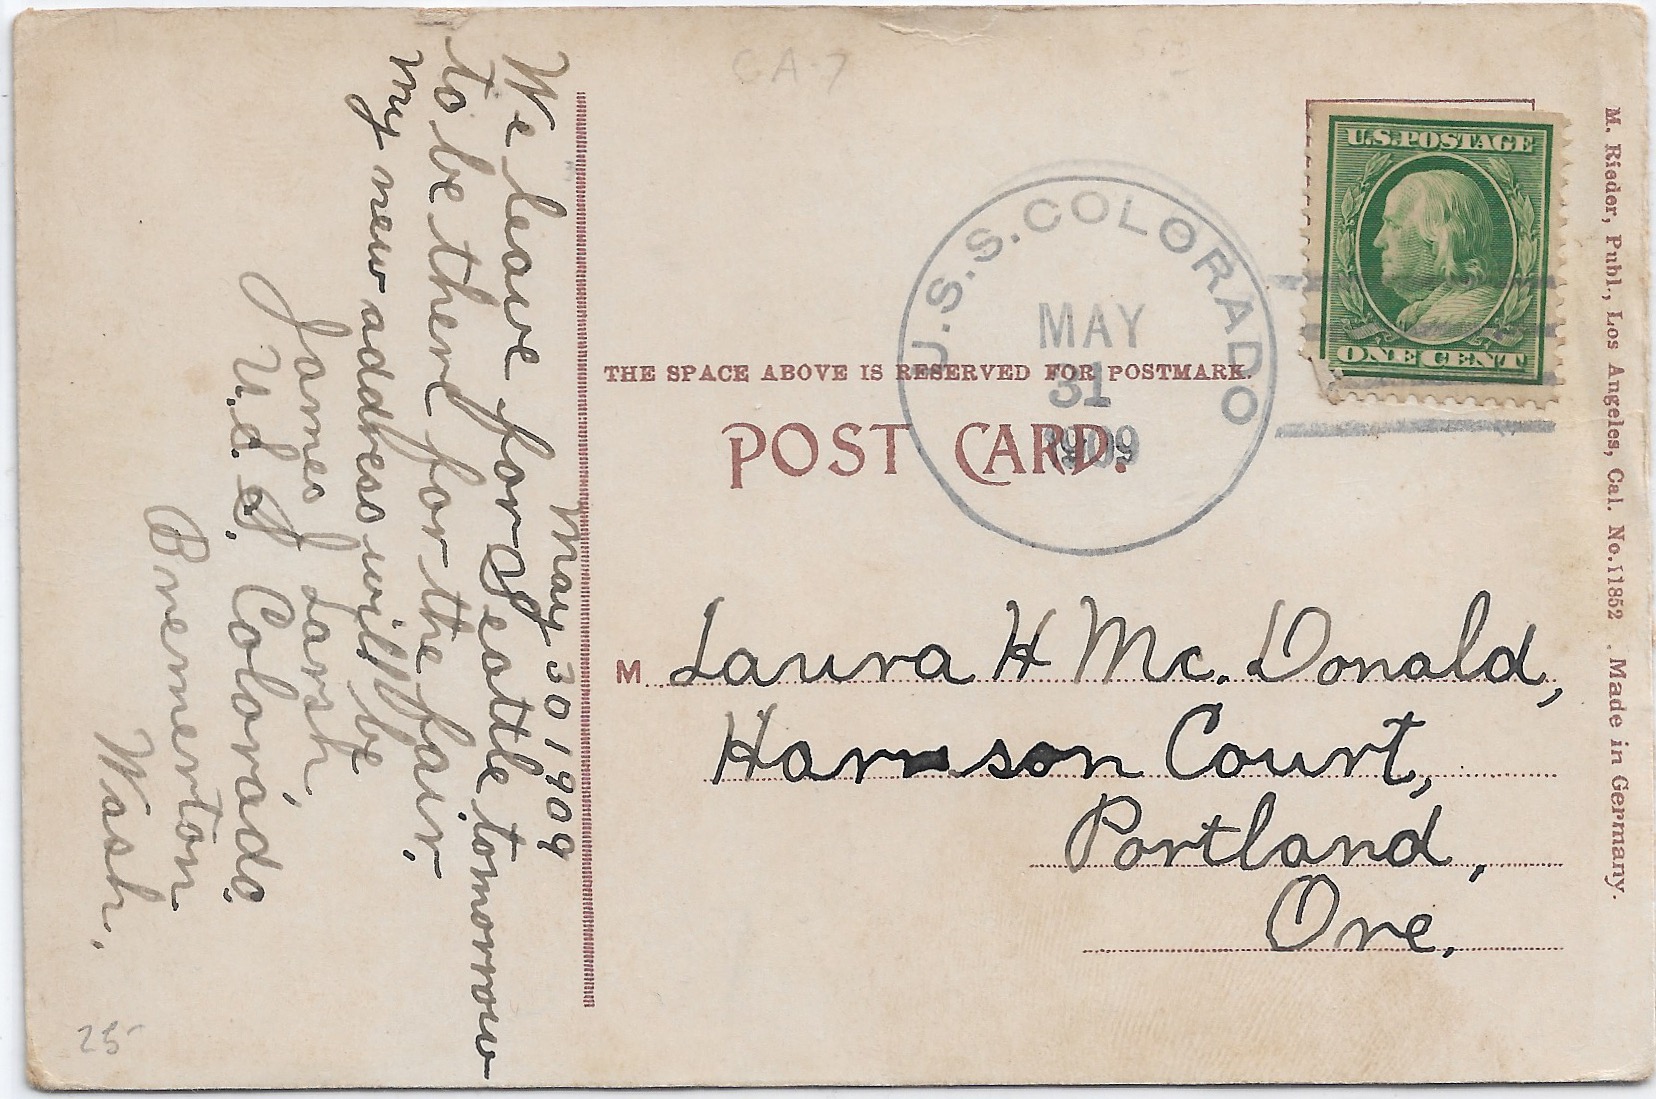 CA-7
May 30 1909
We leave for Seattle tomorrow
to be there for the fair.
My new address will be
James J Larsh,
U.S.S. Colorado.
Bremerton
Wash.
25
U.S.S. COLORADO
MAY
31
1909
U.S. POSTAGE
ONE CENT
THE SPACE ABOVE IS RESERVED FOR POSTMARK.
POST CARD.
M Laura H Mc. Donald,
Harrison Court,
Portland,
Ore.
M. Rieder, Publ., Los Angeles, Cal. No. 11852 . Made in Germany.